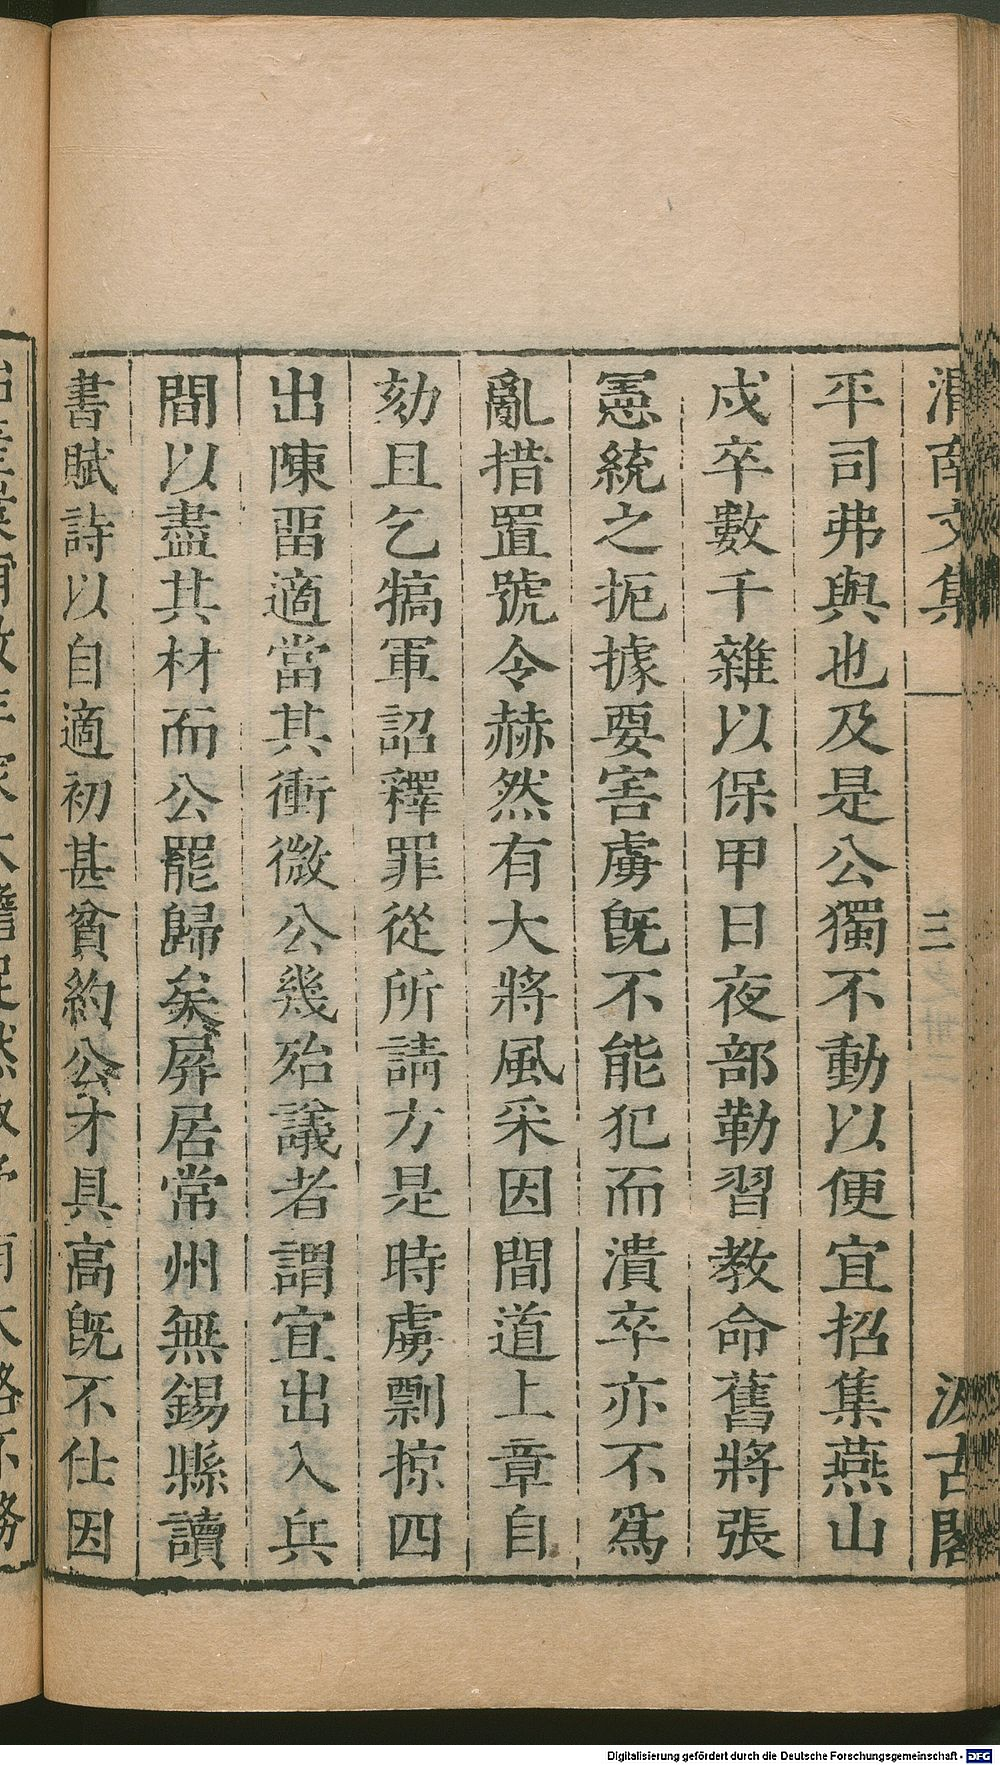 渭南文集 三 汲古閣
平司弗與也及是公獨不動以便宜招集燕山
戍卒數千雜以保甲日夜部勒習教命舊將張
憲統之扼據要害虜旣不能犯而潰卒亦不爲
亂措置號令赫然有大將風采因間道上章自
劾且乞犒軍詔釋罪從所請方是時虜剽掠四
出陳畱適當其衝微公幾殆議者謂宜出入兵
間以盡其材而公罷歸矣屏居常州無錫縣讀
書賦詩以自適初甚貧約公才具高旣不仕因
Digitalisierung gefördert durch die Deutsche Forschungsgemeinschaft - DFG